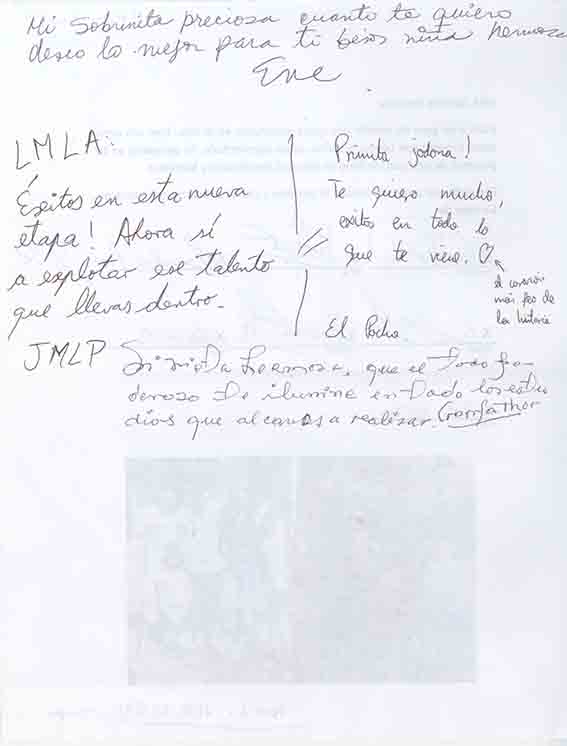 Mi Sobrinita preciosa cuanto te quiero
deseo lo mejor para ti besos niña hermosa
Ene
LMLA:
Éxitos en esta nueva
etapa! Ahora sí
a explotar ese talento
que llevas dentro.
JMLP
Primita jodona!
Te quiero mucho,
exitos en todo lo
que te viene. ♡
el corazón
más feo de
la historia
El Pocho.
Mi nieta hermosa, que el todo po-
deroso te ilumine en todo los estu
dios que alcanses a realizar.